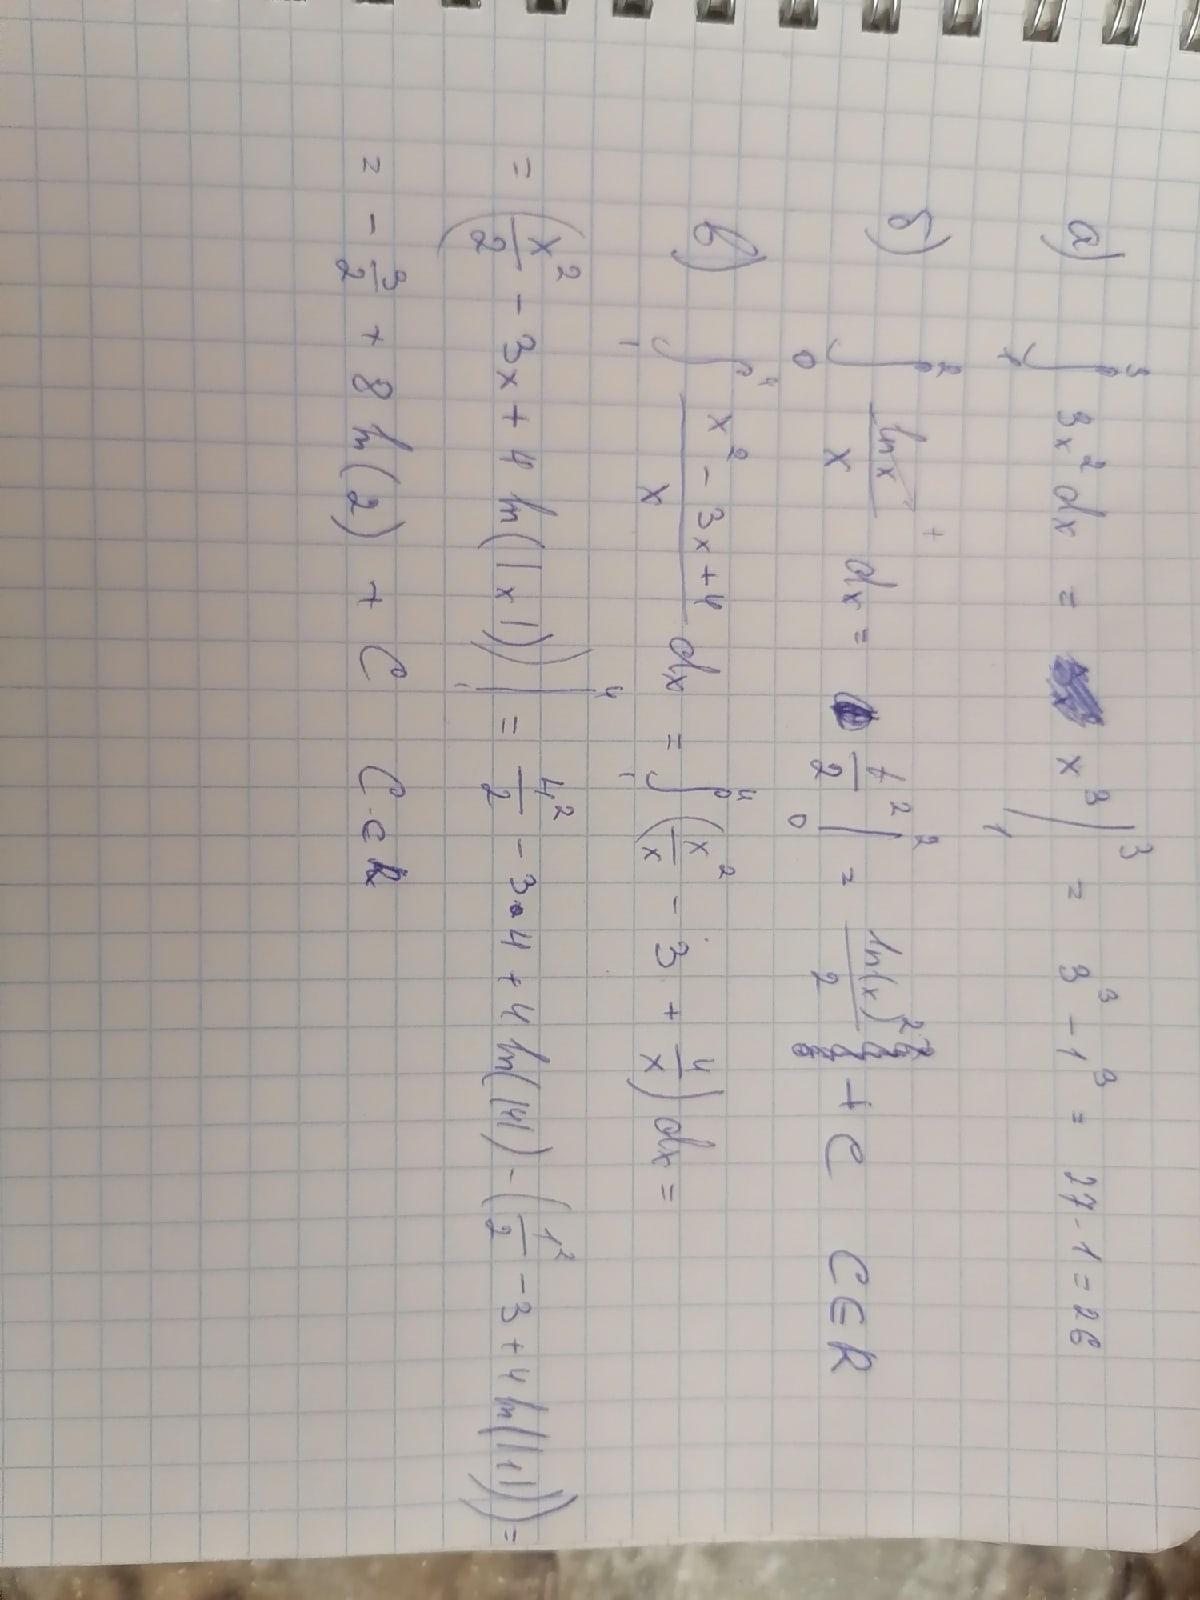 а) ∫₁³ 3x² dx = x³ |₁³ = 3³ - 1³ = 27 - 1 = 26
б) ∫₀² ln x / x dx = t²/2 |₀² = ln(x)²/2 + C C ∈ R
в) ∫₁⁴ (x² - 3x + 4)/x dx = ∫₁⁴ (x²/x - 3 + 4/x) dx =
= (x²/2 - 3x + 4 ln(|x|)) |₁⁴ = 4²/2 - 3·4 + 4 ln(|4|) - (1²/2 - 3 + 4 ln(|1|)) =
= - 3/2 + 8 ln(2) + C C ∈ R